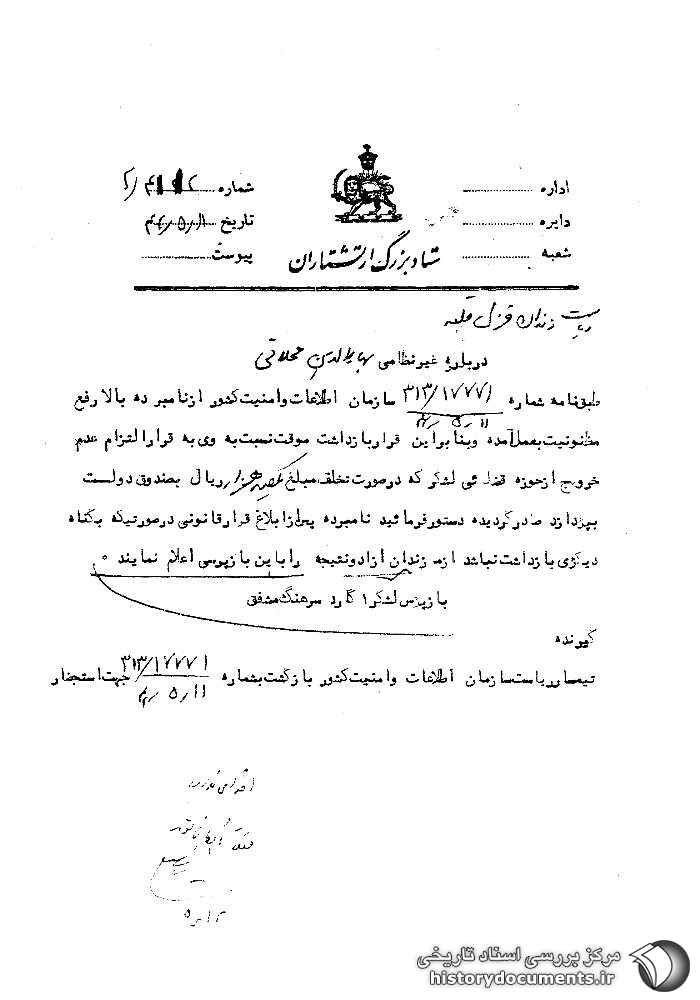 اداره
دایره
شعبه
شماره
تاریخ ۴۲/۵/۱۱
پیوست
ستاد بزرگ ارتشتاران
ریاست زندان قزل قلعه
درباره غیرنظامی بهاءالدین محلاتی
طبقنامه شماره ۳۱۳/۱۷۷۷۱ سازمان اطلاعات وامنیت کشور از نامبرده بالا رفع
۴۲/۵/۱۱
مظنونیت بعمل آمده وبنابراین قرار بازداشت موقت نسبت به وی به قرار التزام عدم
خروج از حوزه قضائی لشکر که درصورت تخلف مبلغ یکصد هزار ریال بصندوق دولت
بپردازد صادر گردیده دستور فرمائید نامبرده پس از ابلاغ قرار قانونی درصورتیکه بگناه
دیگری بازداشت نباشد از زندان ازاد ونتیجه را باین بازپرسی اعلام نمایند ۰
بازپرس لشکر ۱ گارد سرهنگ مشفقی
گیرنده
تیمسار ریاست سازمان اطلاعات وامنیت کشور بازگشت بشماره ۳۱۳/۱۷۷۷۱ جهت استحضار
۴۲/۵/۱۱
مرکز بررسی اسناد تاریخی
historydocuments.ir